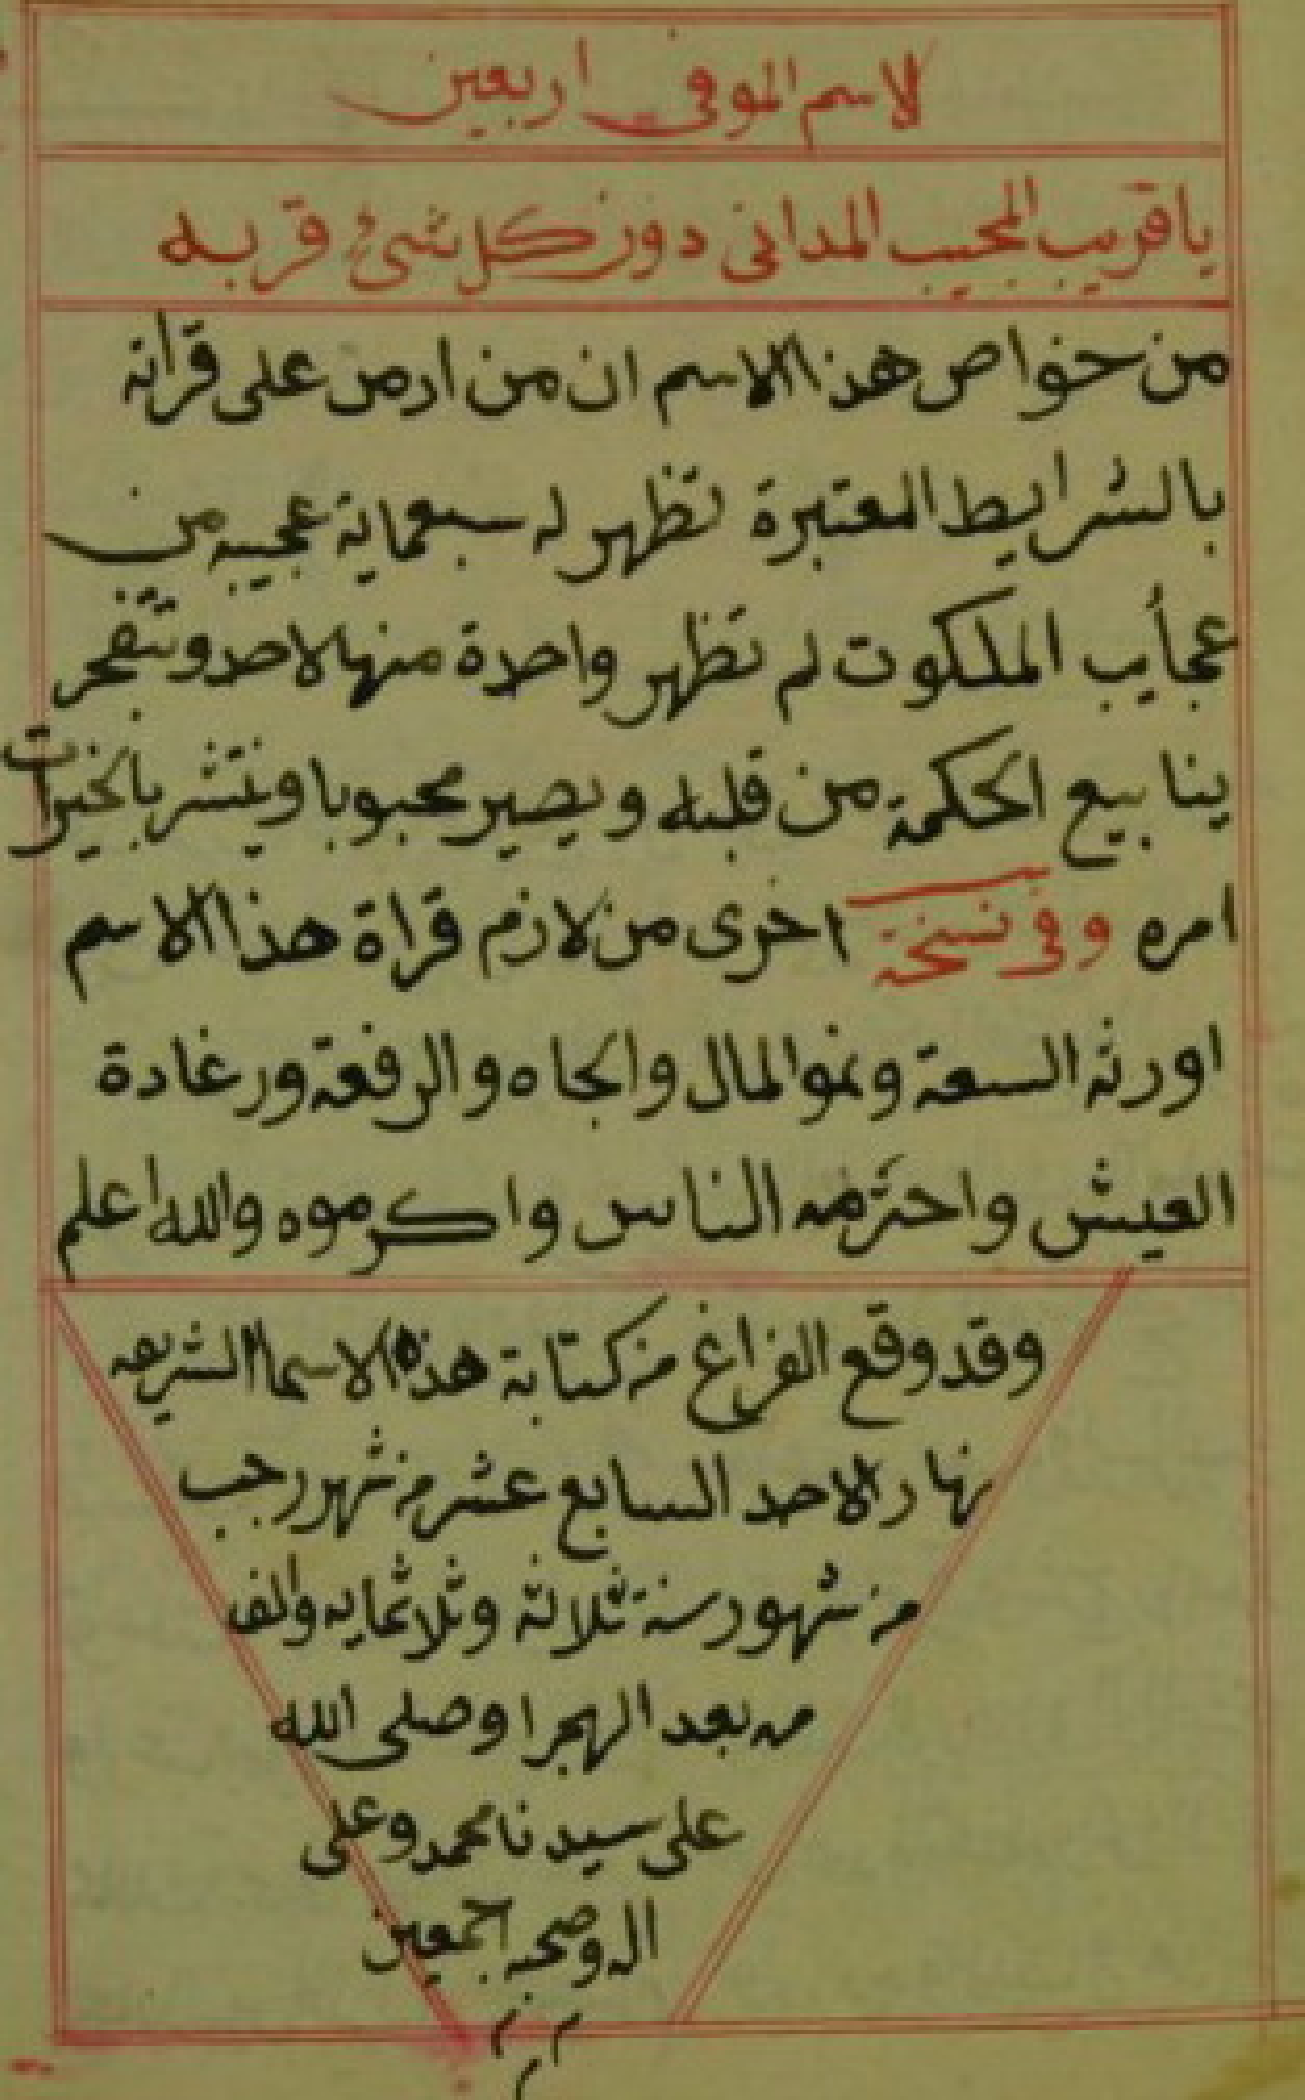 الاسم الموفى اربعين
يا قريب المجيب المدانى دون كل شىء قربه
من خواص هذا الاسم ان من ادمن على قراته
بالشرايط المعتبرة تظهر له سبعماية عجيبه من
عجأيب الملكوت لم تظهر واحدة منها لاحد وتتفجر
ينابيع الحكمة من قلبه ويصير محبوبا وينتشر بالخيرات
امره وفى نسخة اخرى من لازم قراة هذا الاسم
اورثه السعة ونمو المال والجاه والرفعة ورغادة
العيش واحترمه الناس واكرموه والله اعلم
وقد وقع الفراغ من كتابة هذه الاسما الشريفه
نهار الاحد السابع عشر من شهر رجب
من شهور سنة ثلاثة وثلاثمايه والف
من بعد الهجرا وصلى الله
على سيدنا محمد وعلى
اله وصحبه اجمعين
م م م